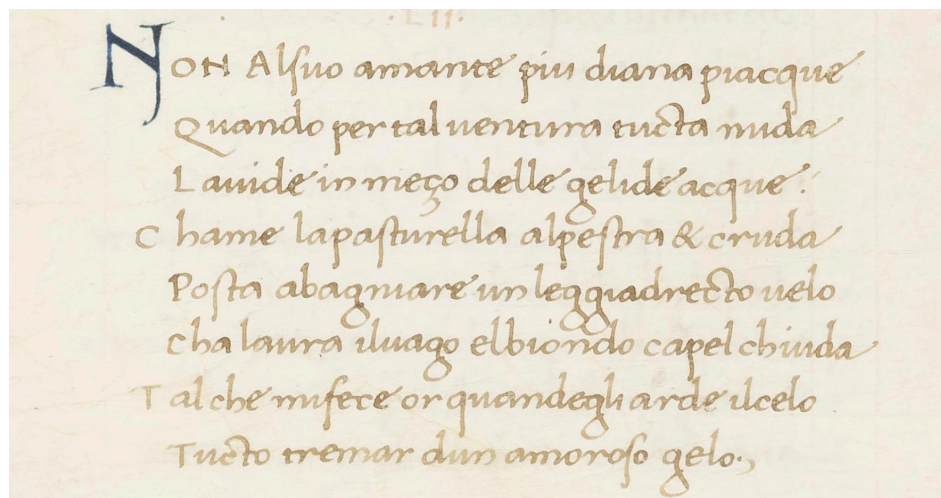 ·LII·
NON Alsuo amante piu diana piacque
Quando per tal uentura tucta nuda
La uide in meço delle gelide acque:
Chame la pasturella alpestra & cruda
Posta abagniare un leggiadrecto uelo
Cha laura iluago elbiondo capel chiuda
Tal che mi fece or quandegli arde ilcelo
Tucto tremar dun amoroso gelo.,